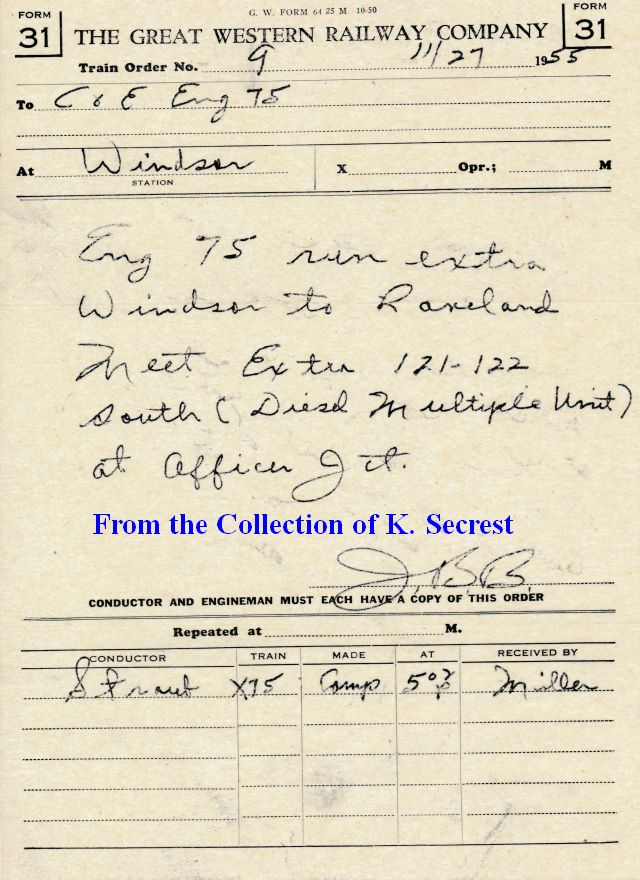 G. W. FORM 64 25 M 10-50
FORM 31 THE GREAT WESTERN RAILWAY COMPANY FORM 31
Train Order No. 9 11/27 1955
To C & E Eng 75
At Windsor X Opr.; M
STATION
Eng 75 run extra
Windsor to Loveland
Meet Extra 121-122
South (Diesel Multiple Unit)
at Officer Jct.
From the Collection of K. Secrest
J.B.B.
CONDUCTOR AND ENGINEMAN MUST EACH HAVE A COPY OF THIS ORDER
Repeated at M.
CONDUCTOR TRAIN MADE AT RECEIVED BY
Straub X75 Comp Miller